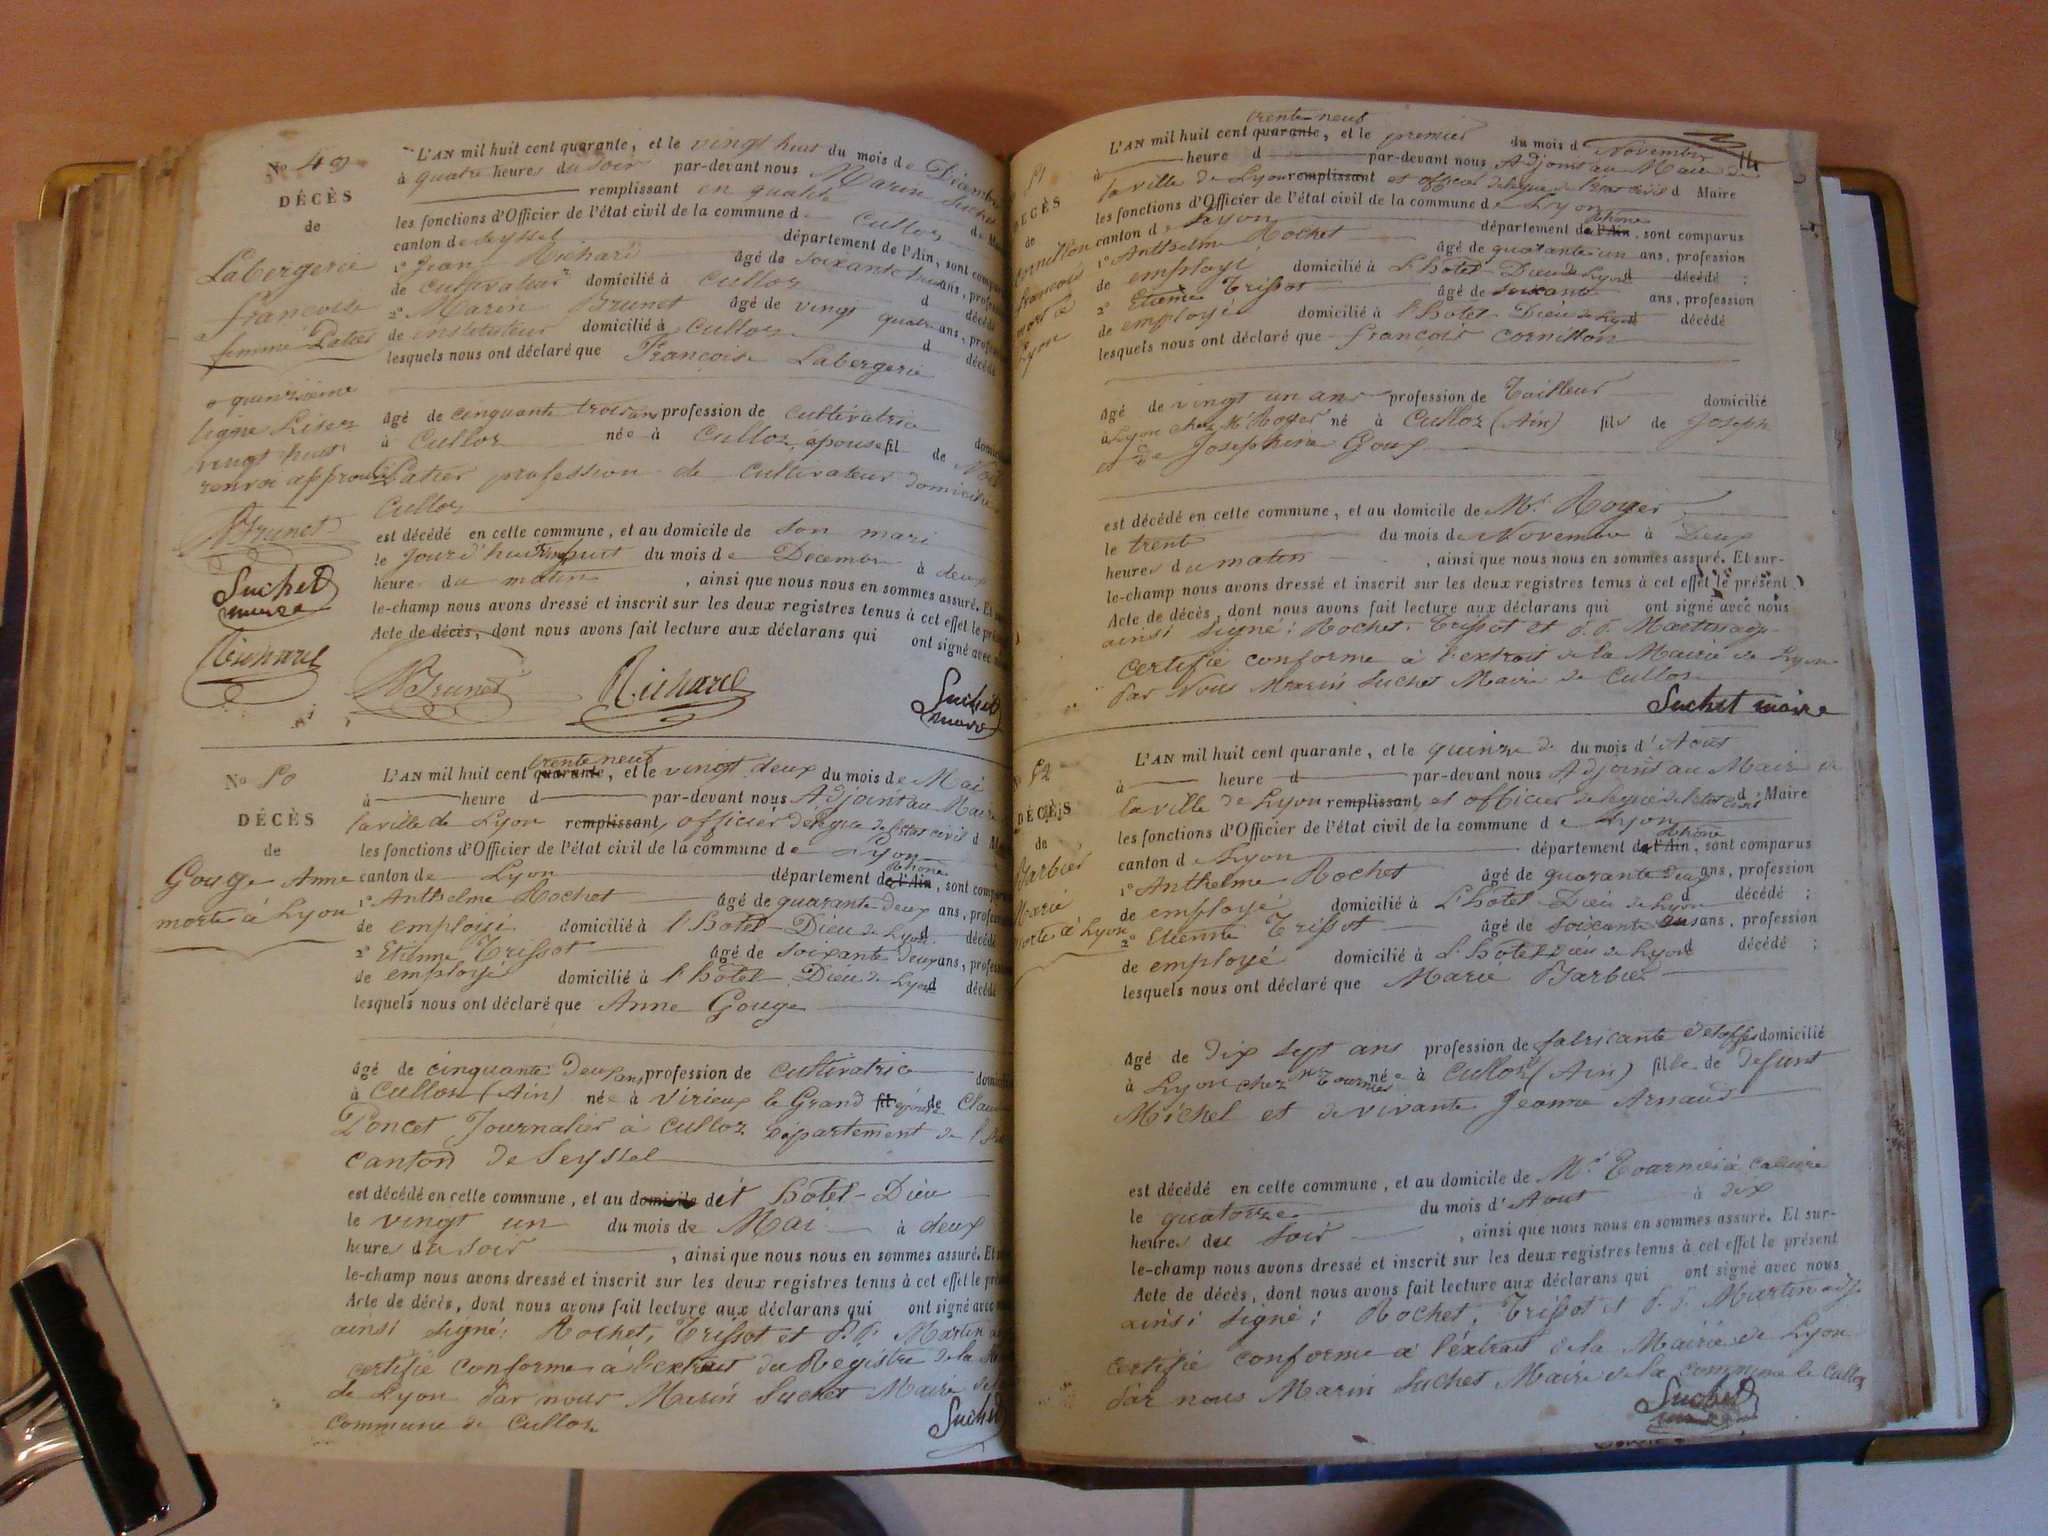 No 49
DÉCÈS
de
Labergerie
françoise
femme Patier
quinzième
ligne Lisez
vingt huit
renvoi approuvé
Brunet
Suchet
maire
Richard
L'AN mil huit cent quarante, et le vingt huit du mois de Décembre
à quatre heures du soir par-devant nous Marin Suchet
remplissant en qualité de
les fonctions d'Officier de l'état civil de la commune de Culloz
canton de Seyssel département de l'Ain, sont
1o Jean Richard âgé de soixante ans,
de cultivateur domicilié à Culloz d décédé
2o Marin Brunet âgé de vingt quatre ans,
de instituteur domicilié à Culloz d décédé
lesquels nous ont déclaré que Françoise Labergerie
âgé de cinquante trois ans profession de cultivatrice
à Culloz née à Culloz épouse fil de
Patier profession de cultivateur domicilié
Culloz
est décédé en cette commune, et au domicile de son mari
le jourd'hui vingt huit du mois de Décembre à deux
heures du matin, ainsi que nous nous en sommes assuré. Et
le-champ nous avons dressé et inscrit sur les deux registres tenus à cet effet le
Acte de décès, dont nous avons fait lecture aux déclarans qui ont signé avec
Brunet Richard Suchet
maire
No 50
DÉCÈS
de
Gouge Anne
morte à Lyon
trente neuf
L'AN mil huit cent quarante, et le vingt deux du mois de Mai
à heure d par-devant nous Adjoint au Maire
la ville de Lyon remplissant officier délégué de l'état civil d
les fonctions d'Officier de l'état civil de la commune de Lyon
Rhône
canton de Lyon département de l'Ain, sont
1o Anthelme Rochet âgé de quarante deux ans,
de employé domicilié à l'hotel-Dieu de Lyon d décédé
2o Etienne Trissot âgé de soixante deux ans,
de employé domicilié à l'hotel Dieu de Lyon d décédé
lesquels nous ont déclaré que Anne Gouge
âgé de cinquante deux ans profession de cultivatrice
à Culloz (Ain) née à Virieux le Grand fil épouse de
Poncet Journalier à Culloz Département de
canton de Seyssel
est décédé en cette commune, et au domicile dit hotel-Dieu
le vingt un du mois de Mai à deux
heures du soir, ainsi que nous nous en sommes assuré.
le-champ nous avons dressé et inscrit sur les deux registres tenus à cet effet le
Acte de décès, dont nous avons fait lecture aux déclarans qui ont signé avec
ainsi signé: Rochet, Trissot et Martin
certifié conforme à l'extrait du Registre de la
de Lyon par nous Marin Suchet Maire de
commune de Culloz
Suchet
51
DÉCÈS
de
Cornillon
francois
mort à
Lyon
trente neuf
L'AN mil huit cent quarante, et le premier du mois d Novembre
à heure d par-devant nous Adjoint au Maire de
la ville de Lyon remplissant et officier délégué de l'état civil d Maire
les fonctions d'Officier de l'état civil de la commune de Lyon
Rhône
canton de Lyon département de l'Ain, sont comparus
1o Anthelme Rochet âgé de quarante un ans, profession
de employé domicilié à l'hotel-Dieu de Lyon d décédé ;
2o Etienne Trissot âgé de soixante ans, profession
de employé domicilié à l'hotel-Dieu de Lyon d décédé
lesquels nous ont déclaré que françois cornillon
âgé de vingt un ans profession de Tailleur domicilié
à Lyon chez Mr Royer né à Culloz (Ain) fils de Joseph
et de Josephine Goux
est décédé en cette commune, et au domicile de Mr Royer
le trente du mois de Novembre à Deux
heures du matin, ainsi que nous nous en sommes assuré. Et sur-
le-champ nous avons dressé et inscrit sur les deux registres tenus à cet effet le présent
Acte de décès, dont nous avons fait lecture aux déclarans qui ont signé avec nous
ainsi signé: Rochet, Trissot et Martin
certifié conforme à l'extrait de la Mairie de Lyon
par Nous Marin Suchet Maire de Culloz
Suchet maire
52
DÉCÈS
de
Barbier
Marie
morte à Lyon
L'AN mil huit cent quarante, et le quinze du mois d'Aout
à heure d par-devant nous Adjoint au Maire de
la ville de Lyon remplissant et officier délégué de l'état civil d Maire
les fonctions d'Officier de l'état civil de la commune de Lyon
Rhône
canton de Lyon département de l'Ain, sont comparus
1o Anthelme Rochet âgé de quarante deux ans, profession
de employé domicilié à l'hotel-Dieu de Lyon d décédé ;
2o Etienne Trissot âgé de soixante ans, profession
de employé domicilié à l'hotel-Dieu de Lyon d décédé ;
lesquels nous ont déclaré que Marie Barbier
âgé de dix sept ans profession de fabricante d'étoffes domicilié
à Lyon chez Mr Tournier née à Culloz (Ain) fille de defunt
Michel et de vivante Jeanne Arnaud
est décédé en cette commune, et au domicile de Mr Tournier à Caluire
le quatorze du mois d'Aout à dix
heures du soir, ainsi que nous nous en sommes assuré. Et sur-
le-champ nous avons dressé et inscrit sur les deux registres tenus à cet effet le présent
Acte de décès, dont nous avons fait lecture aux déclarans qui ont signé avec nous
ainsi signé: Rochet, Trissot et Martin
certifié conforme à l'extrait de la Mairie de Lyon
par nous Marin Suchet Maire de la commune de Culloz
Suchet